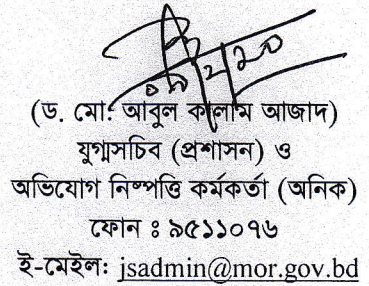 ০৯/২/২০
(ড. মো: আবুল কালাম আজাদ)
যুগ্মসচিব (প্রশাসন) ও
অভিযোগ নিষ্পত্তি কর্মকর্তা (অনিক)
ফোন ঃ ৯৫১১০৭৬
ই-মেইল: jsadmin@mor.gov.bd